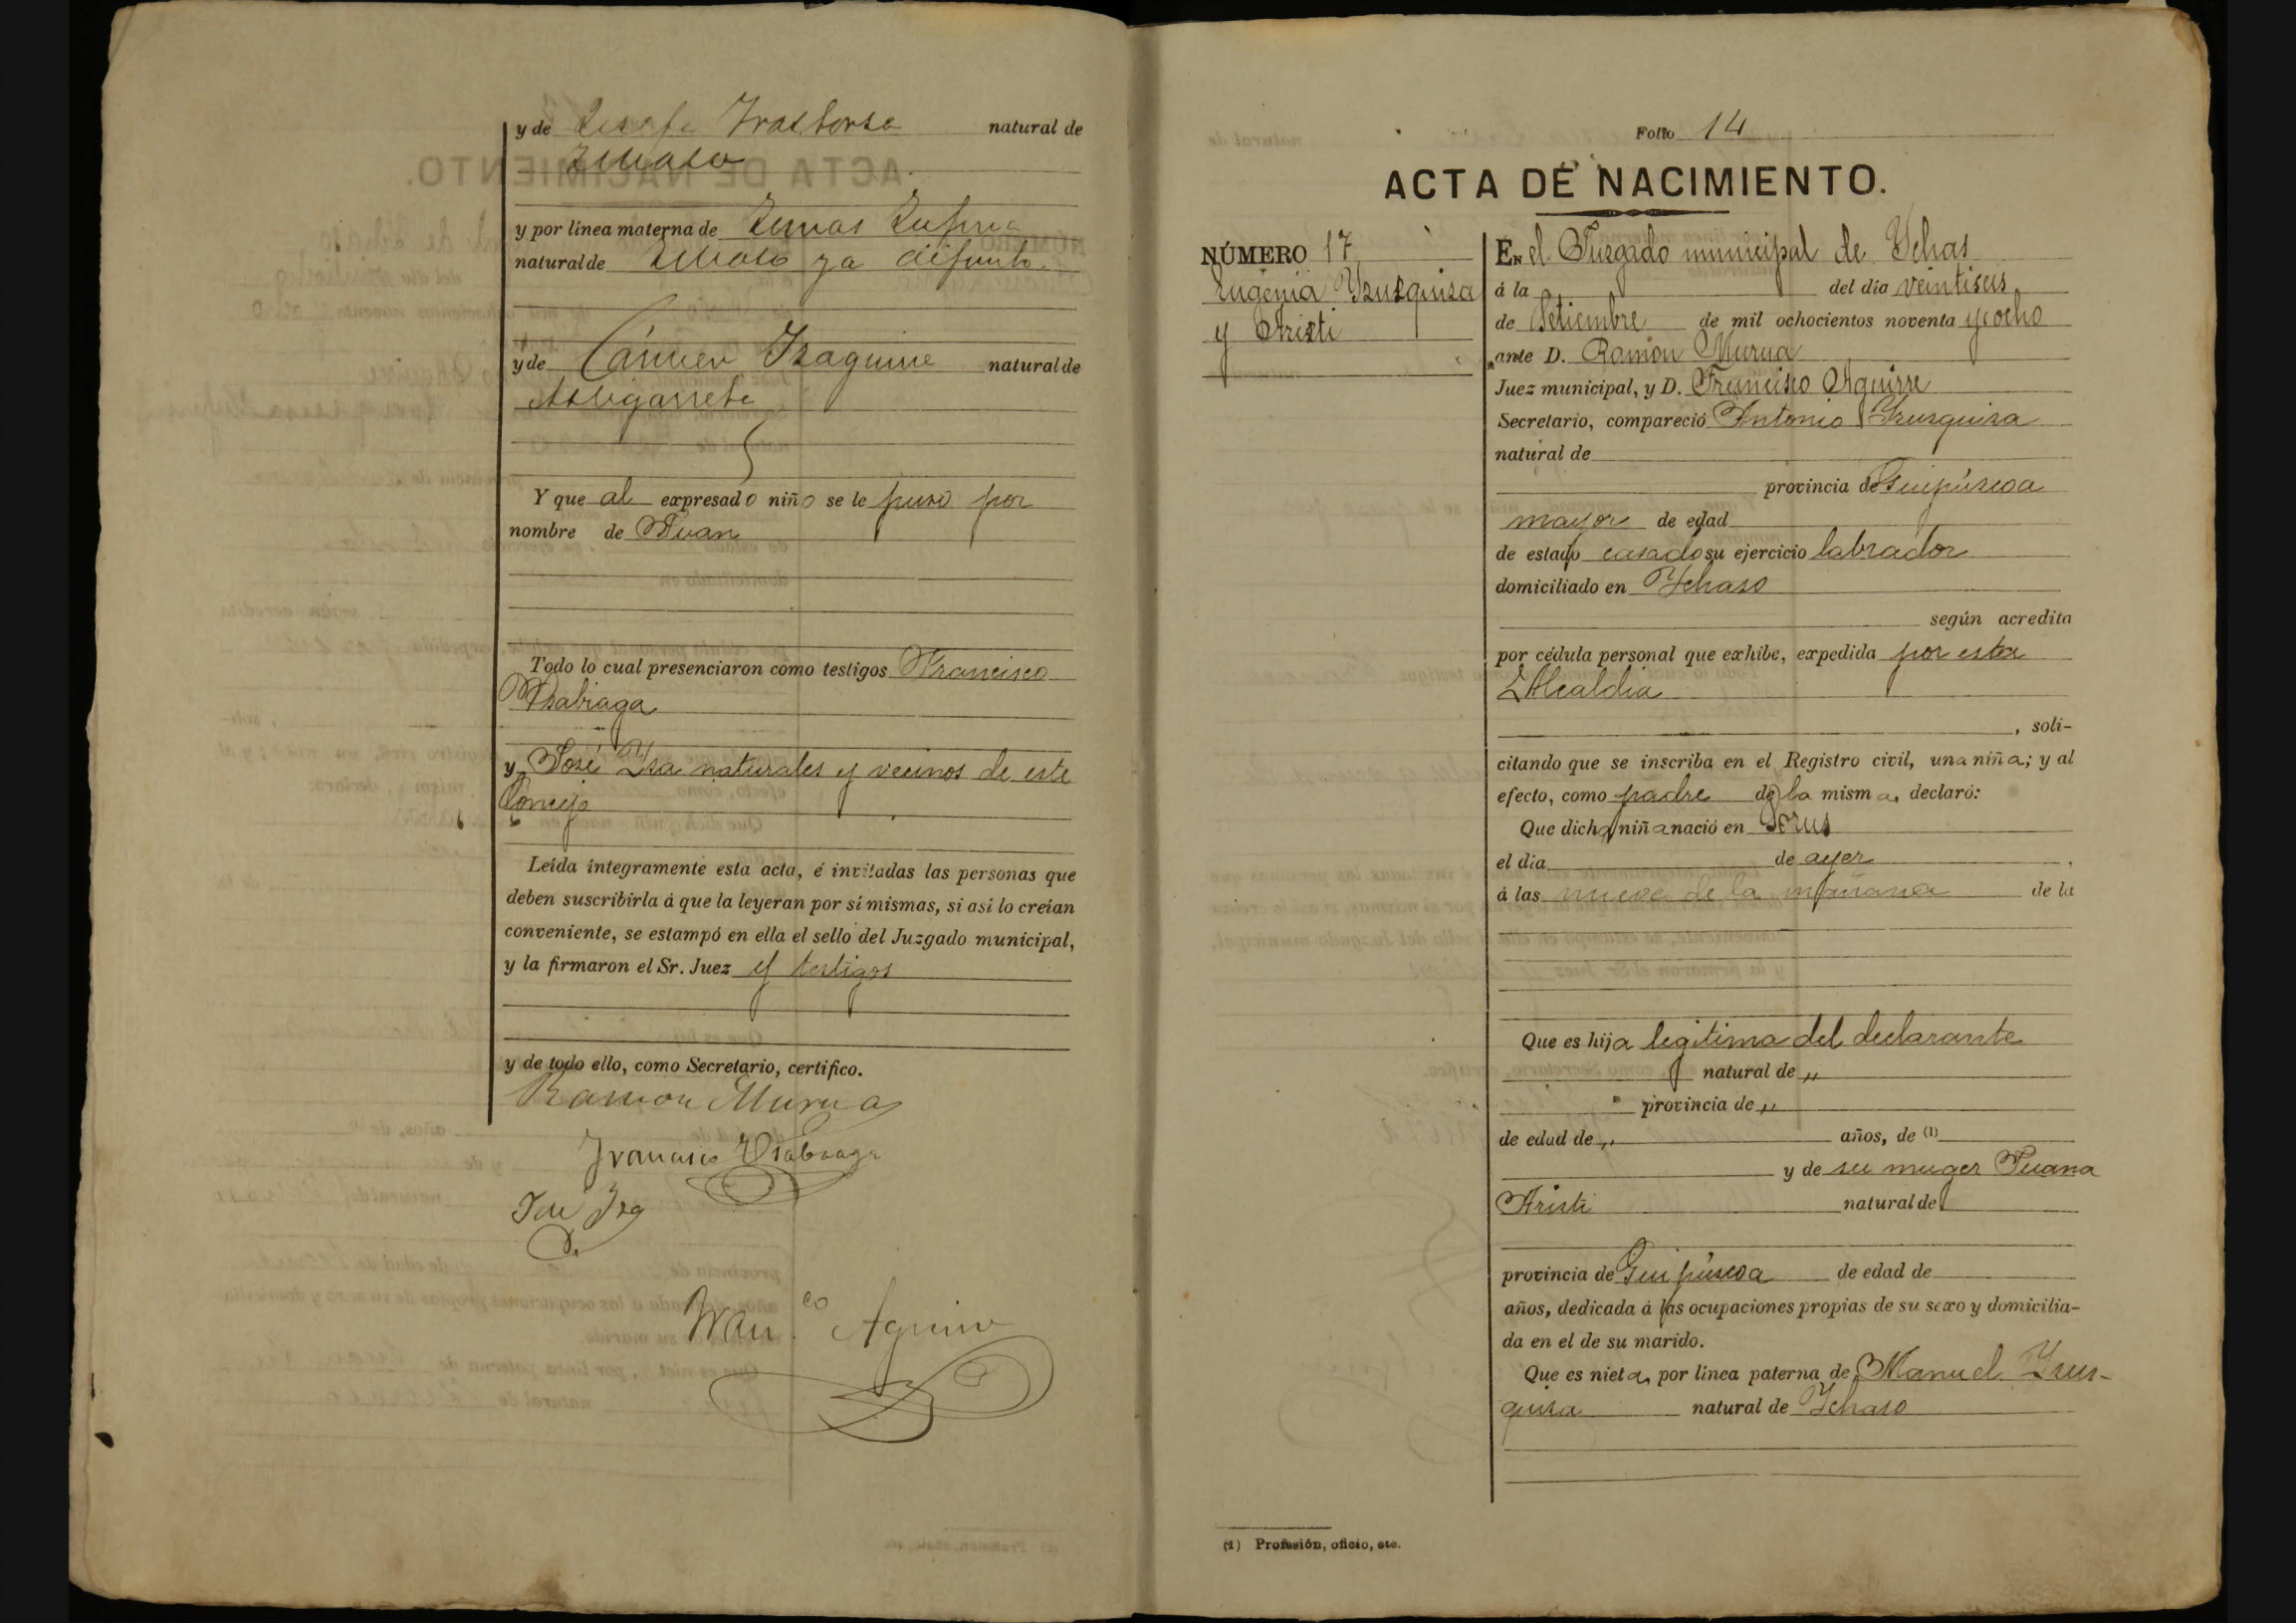 y de Josefa Irastorza natural de
y por línea materna de Lufina
natural de ya difunto.
y de Cármen Izaguirre natural de
Astigarreta
Y que al expresado niño se le puso por
nombre de Juan
Todo lo cual presenciaron como testigos Francisco
y José Isa naturales y vecinos de este
Concejo
Leída íntegramente esta acta, é invitadas las personas que
deben suscribirla á que la leyeran por sí mismas, si así lo creían
conveniente, se estampó en ella el sello del Juzgado municipal,
y la firmaron el Sr. Juez y testigos
y de todo ello, como Secretario, certifico.
Ramon Murua
Francisco
Fran.co Aguirre
Folio 14
ACTA DE NACIMIENTO.
NÚMERO 17
Eugenia Yzusquiza
y Aristi
En el Juzgado municipal de Ychas
á la del día veintiseis
de Setiembre de mil ochocientos noventa y ocho
ante D. Ramon Murua
Juez municipal, y D. Francisco Aguirre
Secretario, compareció Antonio Yzusquiza
natural de
provincia de Guipúscoa
mayor de edad
de estado casado su ejercicio labrador
domiciliado en Ychaso
según acredita
por cédula personal que exhibe, expedida por esta
Alcaldia
, soli-
citando que se inscriba en el Registro civil, una niña; y al
efecto, como padre de la misma, declaró:
Que dicha niña nació en
el día de ayer
á las nueve de la mañana de la
Que es hija legitima del declarante
natural de „
provincia de „
de edad de „ años, de (1)
y de su muger Juana
Aristi natural de
provincia de Guipúscoa de edad de
años, dedicada á las ocupaciones propias de su sexo y domicilia-
da en el de su marido.
Que es nieta, por línea paterna de Manuel Yzus-
quiza natural de Ychaso
(1) Profesión, oficio, etc.